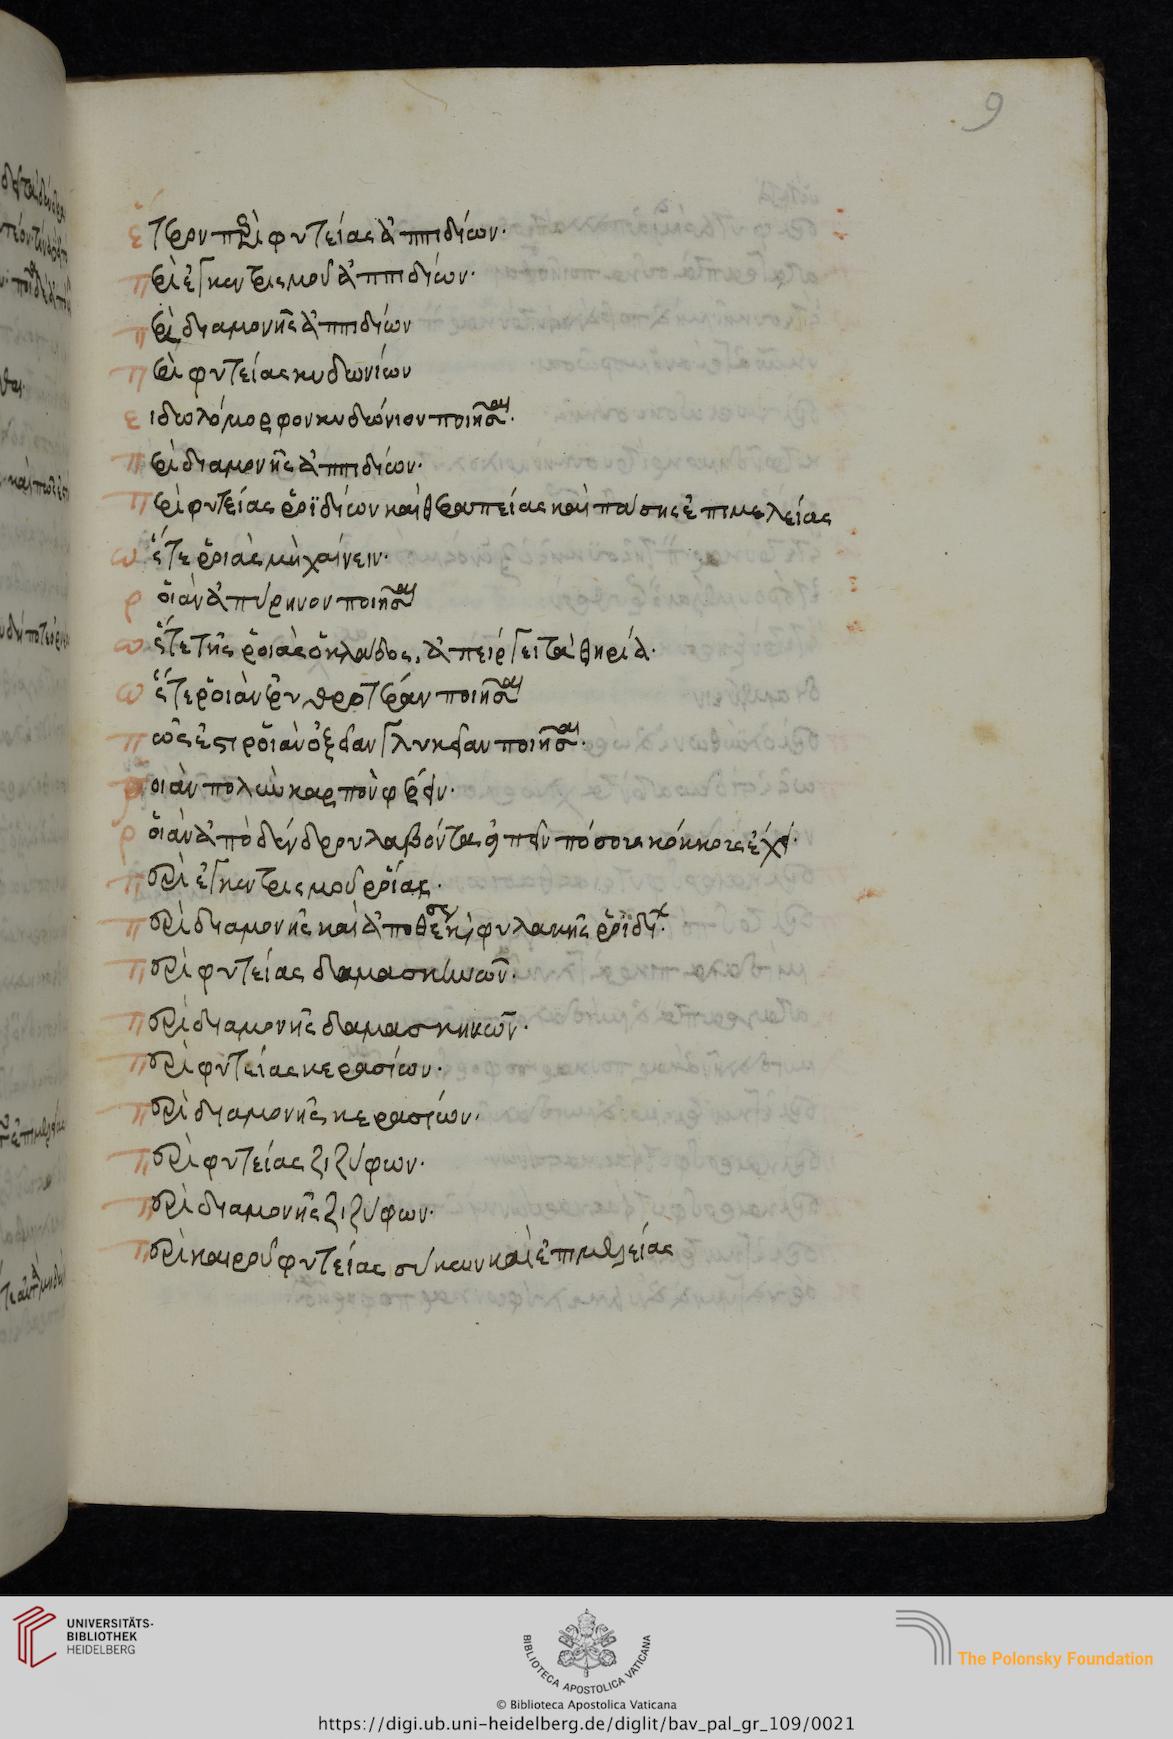 9
ἕτερον περὶ φυτείας ἀππιδίων·
περὶ ἐγκεντρισμοῦ ἀππιδίων·
περὶ διαμονῆς ἀππιδίων
περὶ φυτείας κυδωνίων
εἰδωλόμορφον κυδώνιον ποιῆσαι·
περὶ διαμονῆς ἀππιδίων·
περὶ φυτείας ῥοϊδίων καὶ θεραπείας καὶ πάσης ἐπιμελείας
ὥστε ῥοιὰς μὴ χαίνειν·
ῥοιὰν ἀπύρηνον ποιῆσαι
ὥστε τῆς ῥοιᾶς ὁ κλάδος, ἀπείργει τὰ θηρία·
ὥστε ῥοιὰν ἐρυθροτέραν ποιῆσαι
πῶς ἐστὶ ῥοιὰν ὀξεῖαν γλυκεῖαν ποιῆσαι·
ῥοιὰν πολὺν καρπὸν φέρειν·
ῥοιὰν ἀπὸ δένδρου λαβόντα εἰπεῖν πόσους κόκκους ἔχει·
περὶ ἐγκεντρισμοῦ ῥοιᾶς·
περὶ διαμονῆς καὶ ἀποθέσεως καὶ φυλακῆς ῥοϊδίων·
περὶ φυτείας δαμασκηνῶν·
περὶ διαμονῆς δαμασκηνῶν·
περὶ φυτείας κερασίων·
περὶ διαμονῆς κερασίων·
περὶ φυτείας ζιζύφων·
περὶ διαμονῆς ζιζύφων·
περὶ καιροῦ φυτείας σύκων καὶ ἐπιμελείας
UNIVERSITÄTS-
BIBLIOTHEK
HEIDELBERG
BIBLIOTECA APOSTOLICA VATICANA
The Polonsky Foundation
© Biblioteca Apostolica Vaticana
https://digi.ub.uni-heidelberg.de/diglit/bav_pal_gr_109/0021